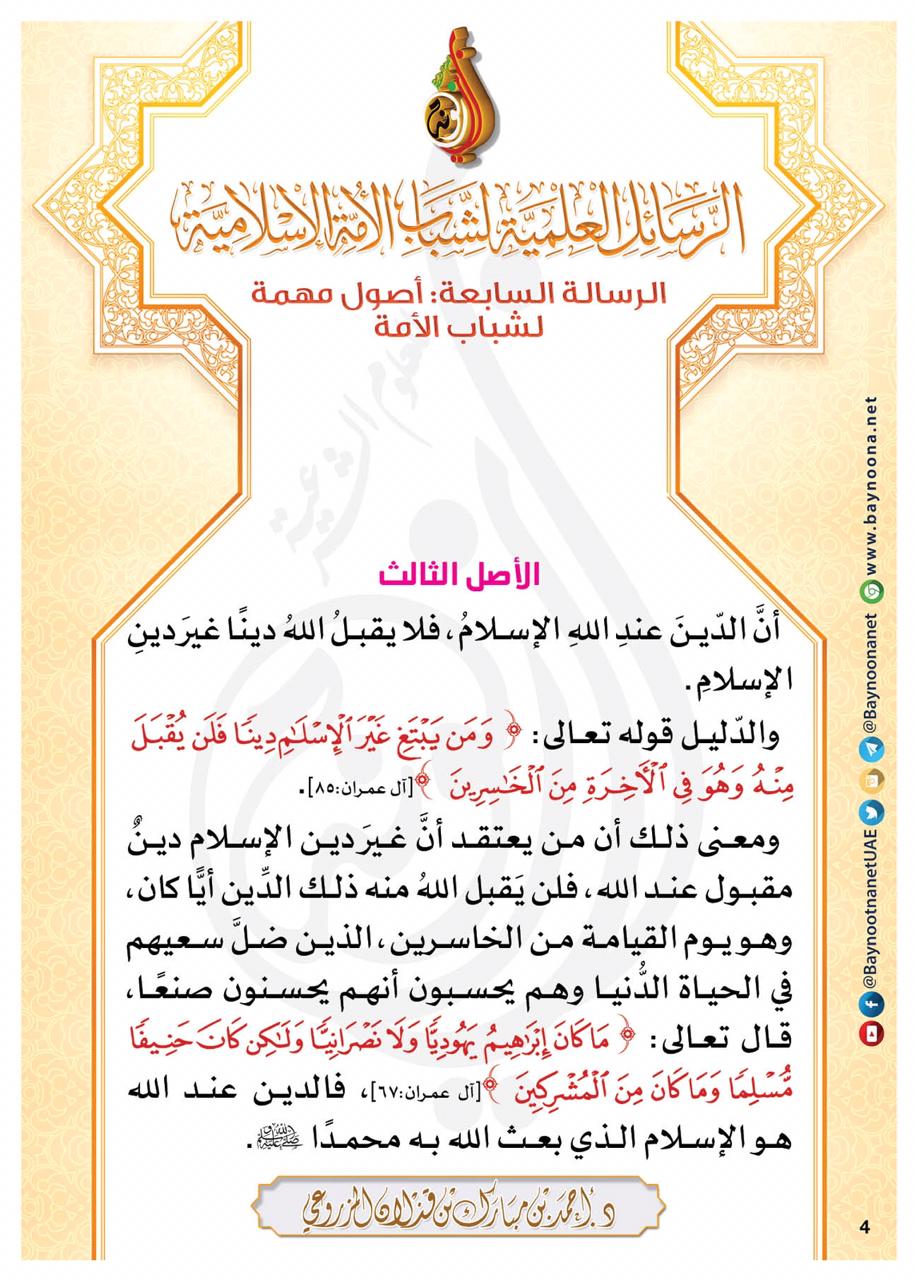 الرسائل العلمية لشباب الأمة الإسلامية
الرسالة السابعة: أصول مهمة
لشباب الأمة
العلوم الشرعية
الأصل الثالث
أنَّ الدّينَ عندِ اللهِ الإسلامُ، فلا يقبلُ اللهُ دينًا غيرَ دينِ
الإسلامِ.
والدّليل قوله تعالى: ﴿ وَمَن يَبْتَغِ غَيْرَ ٱلْإِسْلَٰمِ دِينًا فَلَن يُقْبَلَ
مِنْهُ وَهُوَ فِي ٱلْآخِرَةِ مِنَ ٱلْخَٰسِرِينَ ﴾[آل عمران:٨٥].
ومعنى ذلك أن من يعتقد أنَّ غيرَ دين الإسلام دينٌ
مقبول عند الله، فلن يَقبل اللهُ منه ذلك الدِّين أيًّا كان،
وهو يوم القيامة من الخاسرين، الذين ضلَّ سعيهم
في الحياة الدُّنيا وهم يحسبون أنهم يحسنون صنعًا،
قال تعالى: ﴿ مَا كَانَ إِبْرَٰهِيمُ يَهُودِيًّا وَلَا نَصْرَانِيًّا وَلَٰكِن كَانَ حَنِيفًا
مُّسْلِمًا وَمَا كَانَ مِنَ ٱلْمُشْرِكِينَ ﴾[آل عمران:٦٧]، فالدين عند الله
هو الإسلام الذي بعث الله به محمدًا ﷺ.
د. أحمد بن مبارك بن قذلان المزروعي
4
@BaynootnanetUAE @Baynoonanet www.baynoona.net